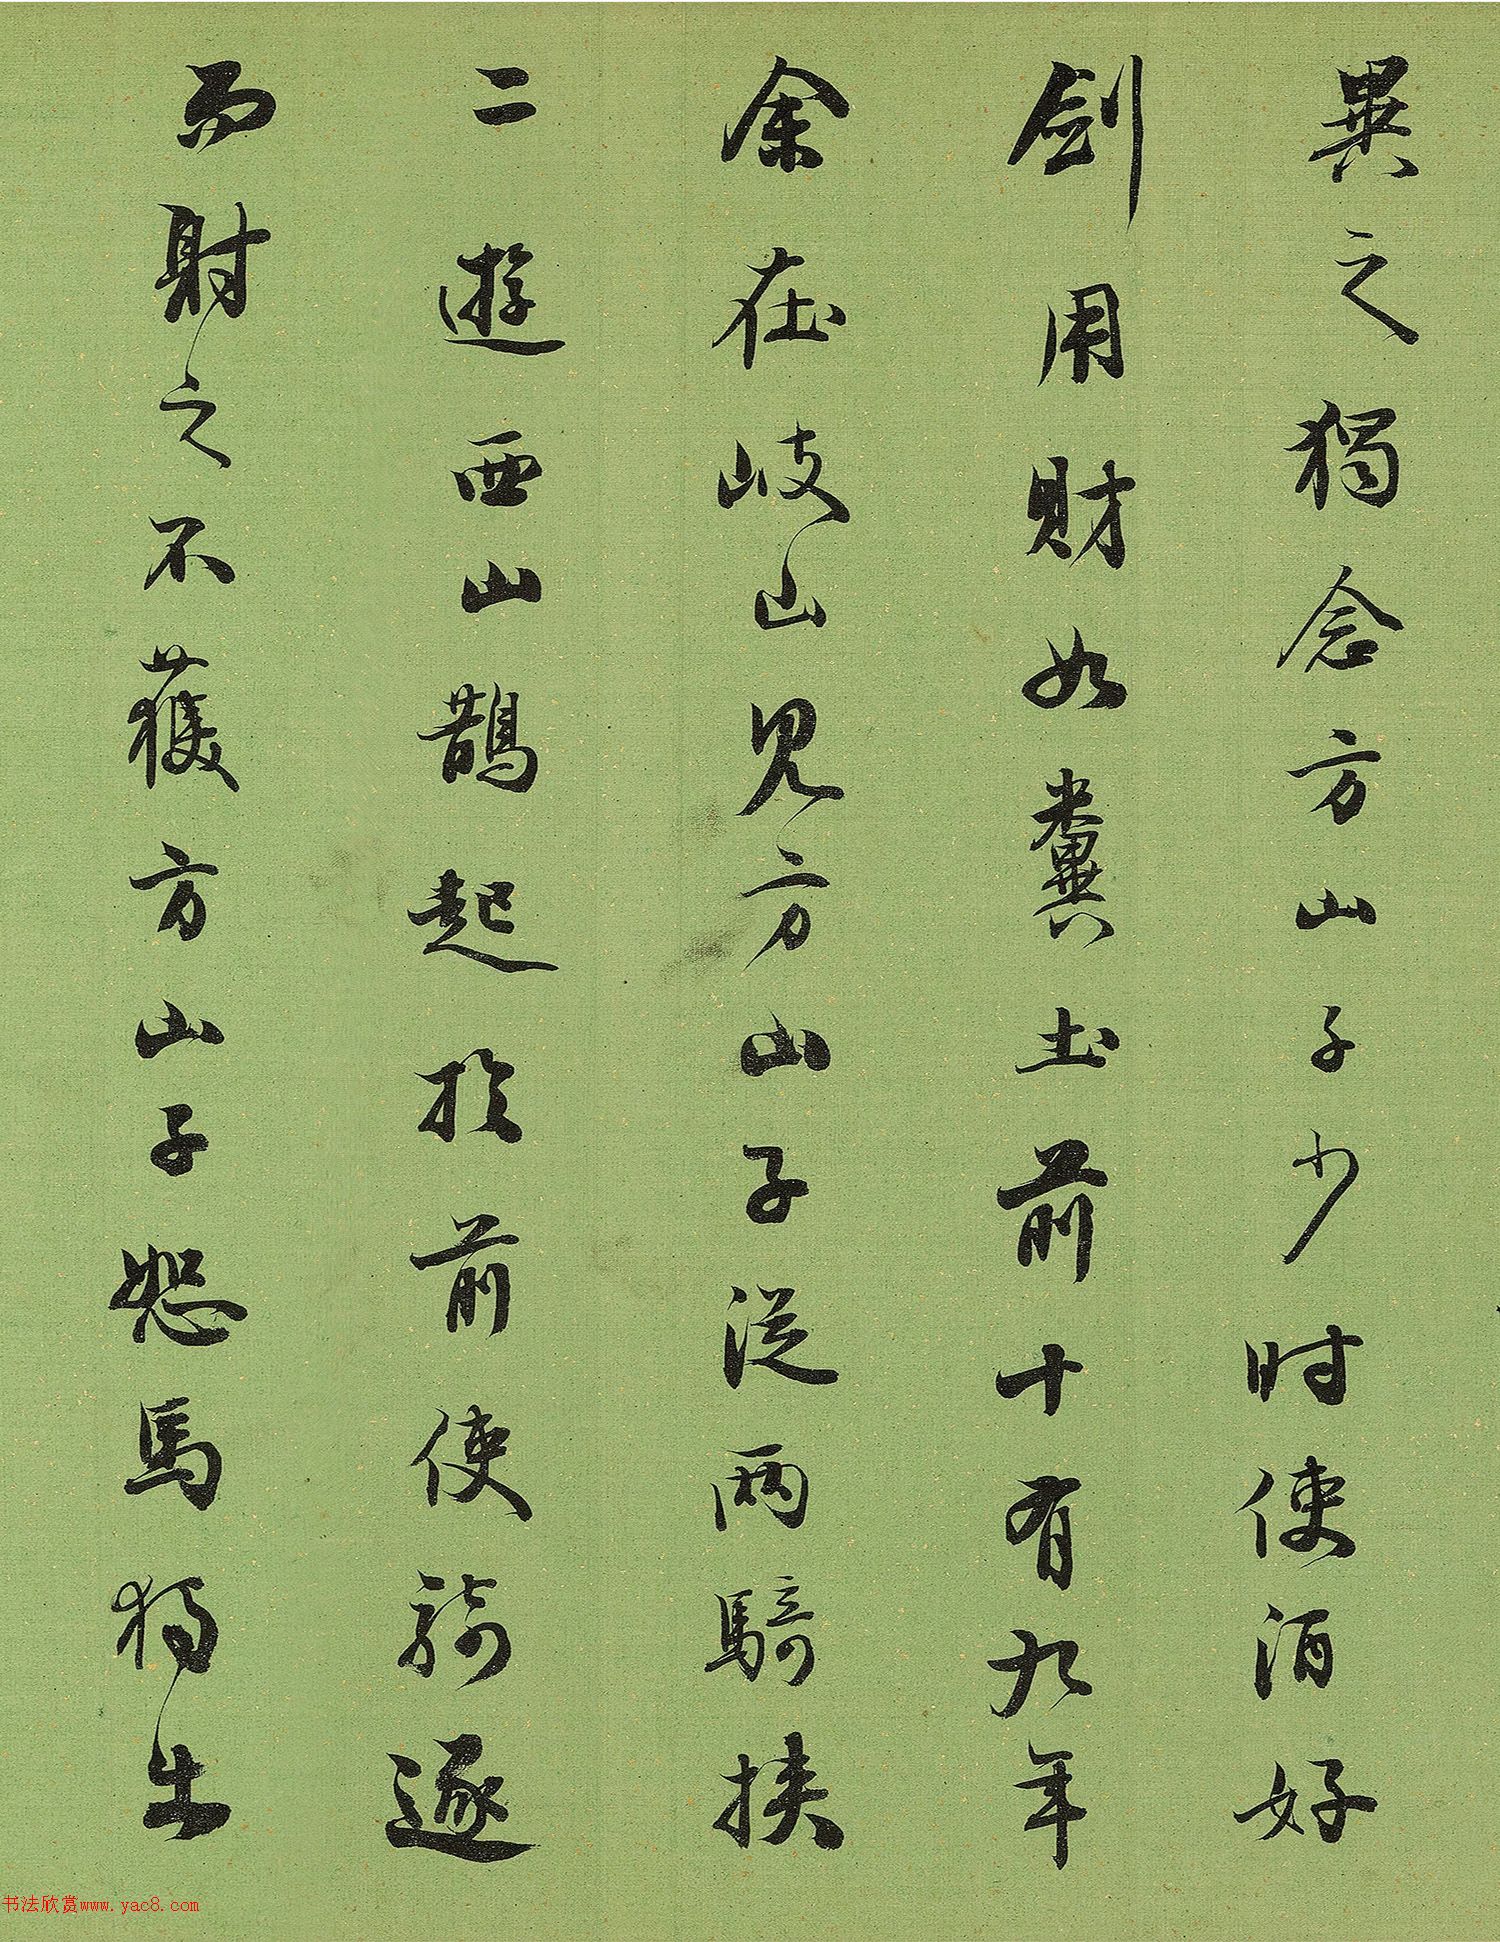 異之獨念方山子少時使酒好
劍用財如糞土前十有九年
余在岐山見方山子從兩騎挾
二遊西山鵲起於前使騎逐
而射之不獲方山子怒馬獨出
书法欣赏www.yac8.com